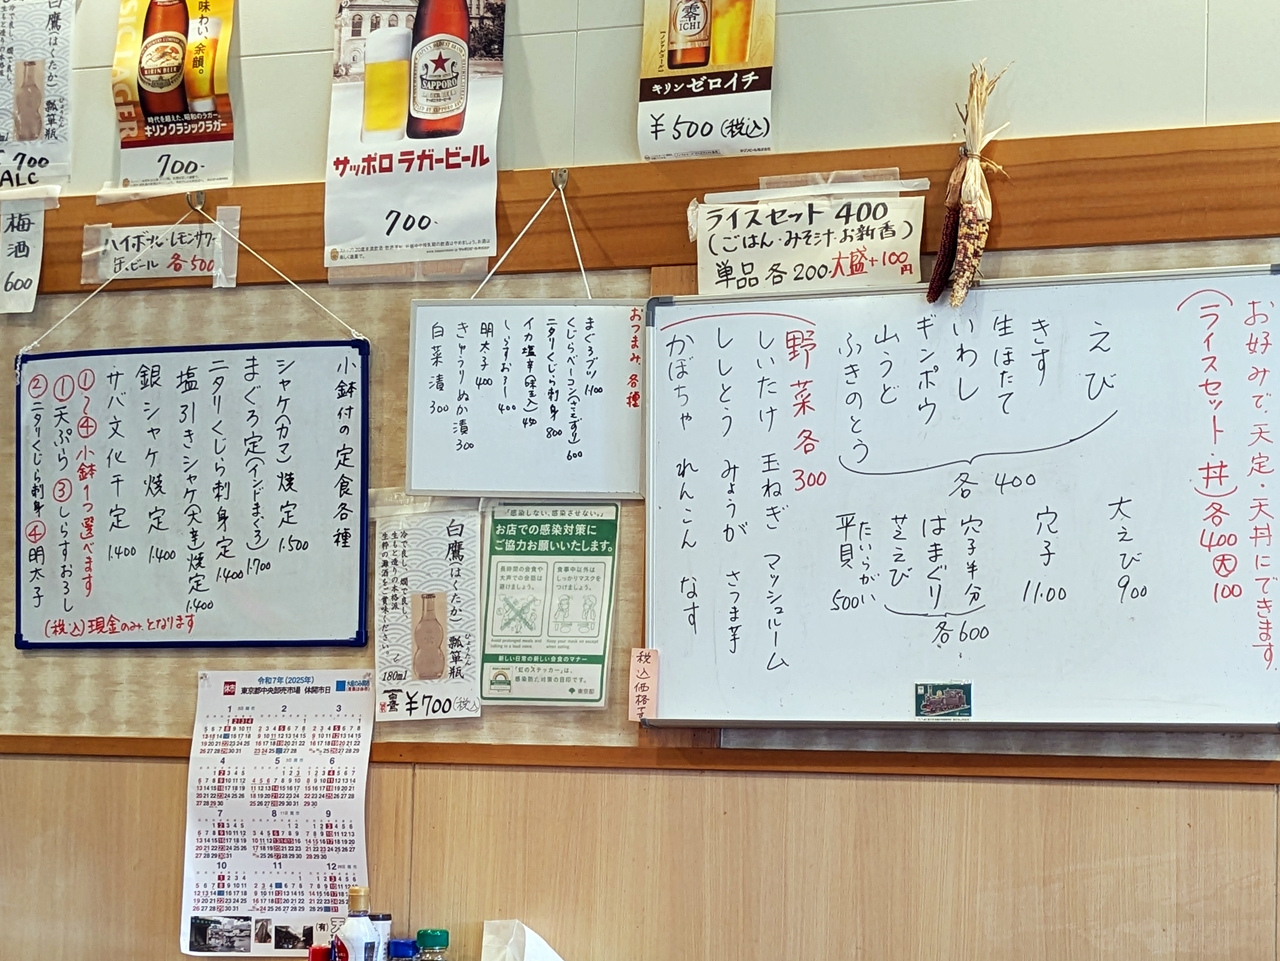 白鷹(はくたか)
瓢箪瓶
冷で良し、燗で良し、
生もと造りの本格派
700
ALC
梅酒
600
味わい、余韻。
KIRIN BEER
時代を超えた、昭和のラガー。
キリンクラシックラガー
700-
ハイボール・レモンサワー
缶ビール 各500
SAPPORO
サッポロ ラガービール
700-
零
ICHI
キリン ゼロイチ
¥500(税込)
ライスセット 400
(ごはん・みそ汁・お新香)
単品各200・大盛+100円
お好みで、天定・天丼にできます
(ライスセット・丼)各400 大100
えび
きす
生ほたて
いわし
ギンポウ
山うど
ふきのとう
各400
大えび 900
穴子 1100
穴子半分
はまぐり
芝えび
各600
たいらがい
平貝 500
野菜各300
しいたけ 玉ねぎ マッシュルーム
ししとう みょうが さつま芋
かぼちゃ れんこん なす
税込価格
おつまみ各種
まぐろブツ 1100
くじらベーコン(さえずり) 600
ニタリくじら刺身 800
イカ塩辛(味玉入) 450
しらすおろし 400
明太子 400
きゅうりぬか漬 300
白菜漬 300
小鉢付の定食各種
シャケ(カマ)焼定 1.500
まぐろ定(インドまぐろ) 1.700
ニタリくじら刺身定 1.400
塩引きシャケ(大辛)焼定 1.400
銀シャケ焼定 1.400
サバ文化干定 1.400
①〜④小鉢1つ選べます
①天ぷら ③しらすおろし
②ニタリくじら刺身 ④明太子
(税込)現金のみ、となります
白鷹(はくたか)
瓢箪瓶
ひょうたん
冷で良し、燗で良し、
生もと造りの本格派
生粋の灘酒をご賞味ください。
180ml
¥700(税込)
「感染しない、感染させない。」
お店での感染対策に
ご協力お願いいたします。
長時間の会食や
大声での会話は
避けましょう。
食事中以外は
しっかりマスクを
つけましょう。
新しい日常の新しい会食のマナー
「虹のステッカー」は、
感染防止対策の目印です。
東京都
令和7年(2025年)
東京都中央卸売市場 休開市日
休市
1
2
3
4
5
6
7
8
9
10
11
12
(有)